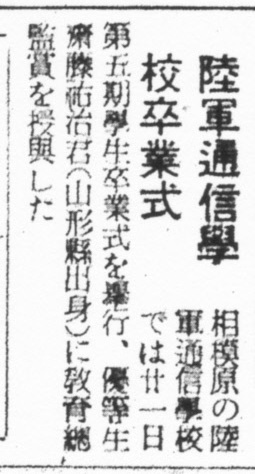 陸軍通信學
校卒業式
相模原の陸
軍通信學校
では廿一日
第五期學生卒業式を擧行、優等生
齋藤祐治君(山形縣出身)に敎育總
監賞を授與した